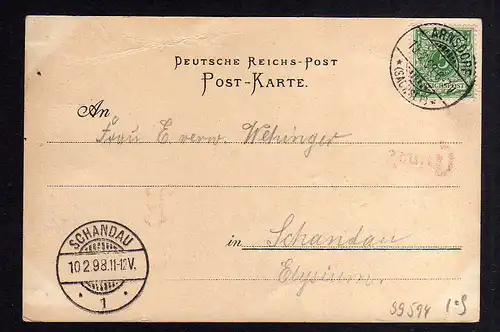 DEUTSCHE REICHS-POST
POST-KARTE.
ARNSDORF
(SACHSEN)
REICHSPOST
An
Frau E. verw.
in Schandau
Elysium.
SCHANDAU
10 2. 98. 11-12V.
1
39594